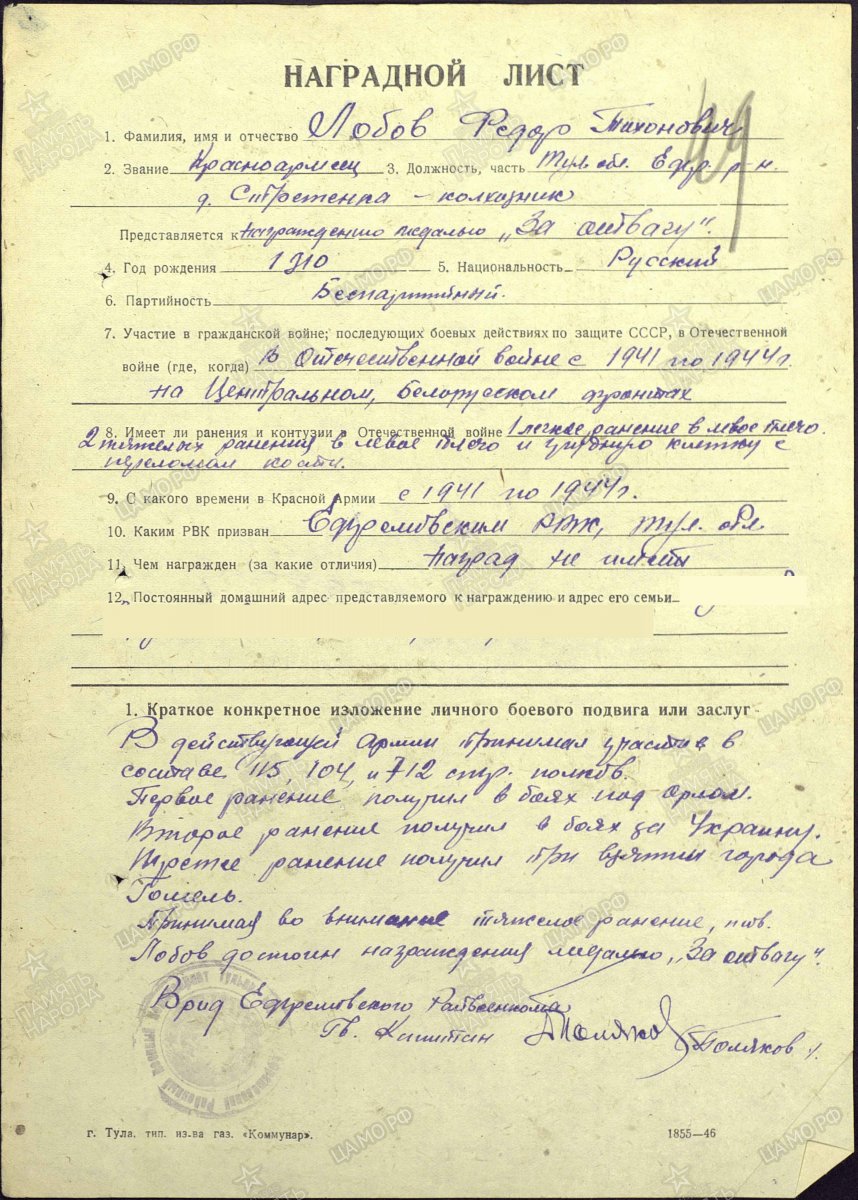 НАГРАДНОЙ ЛИСТ
49
1. Фамилия, имя и отчество Лобов Федор Тихонович
2. Звание Красноармеец 3. Должность, часть Тул. обл. Ефр. р-н.
д. — колхозник
Представляется к награждению медалью „За отвагу“.
4. Год рождения 1910 5. Национальность Русский
6. Партийность Беспартийный.
7. Участие в гражданской войне; последующих боевых действиях по защите СССР, в Отечественной
войне (где, когда) В Отечественной войне с 1941 по 1944 г.
на Центральном, Белорусском фронтах
8. Имеет ли ранения и контузии в Отечественной войне 1 легкое ранение в левое плечо.
2 тяжелых ранения в левое плечо и грудную клетку с
переломом кости.
9. С какого времени в Красной Армии с 1941 по 1944 г.
10. Каким РВК призван Ефремовским РВК, Тул. обл.
11. Чем награжден (за какие отличия) наград не имеет
12. Постоянный домашний адрес представляемого к награждению и адрес его семьи
1. Краткое конкретное изложение личного боевого подвига или заслуг
В действующей Армии принимал участие в
составе 115, 104, и 712 стр. полков.
Первое ранение получил в боях под Орлом.
Второе ранение получил в боях за Украину.
Третье ранение получил при взятии города
Гомель.
Принимая во внимание тяжелое ранение, тов.
Лобов достоин награждения медалью „За отвагу“.
Врид Ефремовского Райвоенкома
Гв. Капитан Поляков /Поляков/.
г. Тула, тип. из-ва газ. «Коммунар».
1855—46
ПАМЯТЬ НАРОДА
ЦАМО.РФ